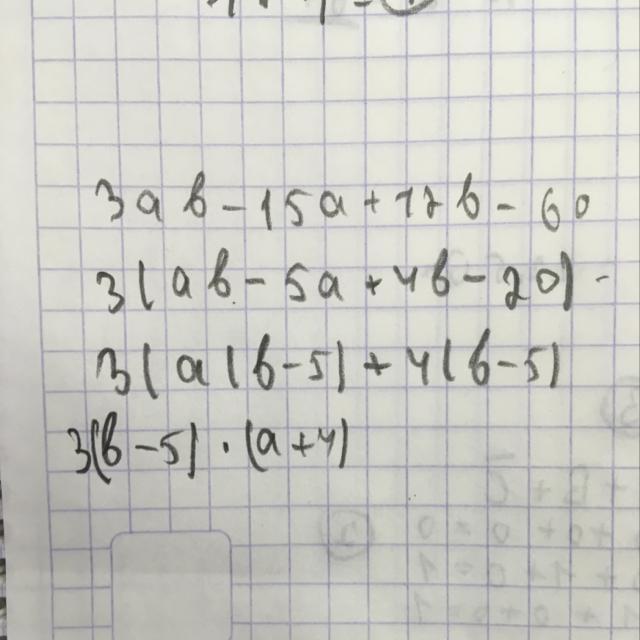 3ab-15a+12b-60
3(ab-5a+4b-20)-
3(a(b-5)+4(b-5)
3(b-5)·(a+4)